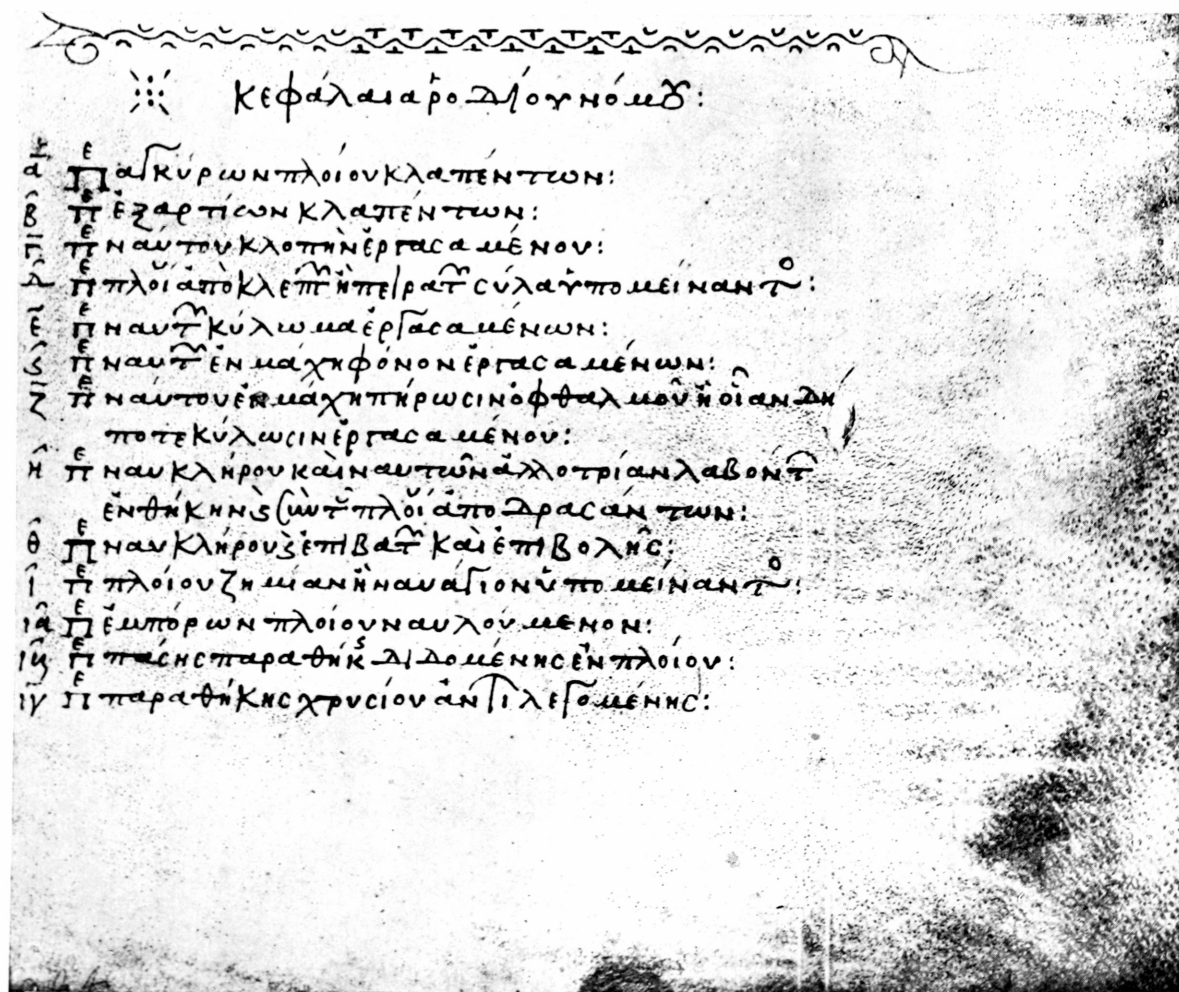 κεφάλαια ῥοδίου νόμου:
α Πε ἀγκύρων πλοίου κλαπέντων:
β Πε ἐξαρτίσων κλαπέντων:
γ Πε ναύτου κλοπὴν ἐργασαμένου:
δ Πε πλοί ἀπὸ κλεπτ ἢ πειρατ σύλα ὑπομείναντο:
ε Πε ναυτ κύλωμα ἐργασαμένων:
ς Πε ναυτ ἐν μάχη φόνον ἐργασαμένων:
ζ Πε ναύτου ἐν μάχη πήρωσιν ὀφθαλμοῦ ἢ οἱανδή
ποτε κύλωσιν ἐργασαμένου:
η Πε ναυκλήρου καὶ ναυτῶν ἀλλοτρίαν λαβόντ
ἐνθήκην ϗ σὺν τ πλοί ἀποδρασάντων:
θ Πε ναυκλήρου ϗ ἐπιβατ καὶ ἐπιβολῆς:
ι Πε πλοίου ζημίαν ἢ ναυάγιον ὑπομείναντο:
ια Πε ἐμπόρων πλοίου ναυλουμενον:
ιβ Πε πάσης παραθήκς διδομένης ἐν πλοίου:
ιγ Πε παραθήκης χρυσίου ἀντιλεγομένης: